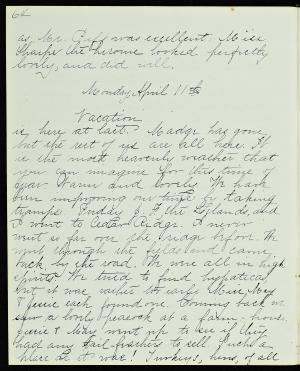 62
as Mr. Puff was excellent. Miss
Sharpe the heroine looked perfectly
lovely, and did well.
Monday, April 11th
Vacation
is here at last. Madge has gone,
but the rest of us are all here. It
is the most heavenly weather that
you can imagine for this time of
year. Warm and lovely. We have
been improving our time by taking
tramps. Friday the and
I went to Cedar Ridge. I never
went so far over the ridge before. We
went through the woods and came
back by the road. We were all in high
spirits. We tried to find hepaticas
but it was rather too early. Miss May
& Jessie each found one. Coming back we
saw a lovely peacock at a farm-house.
Jessie & May went up to see if they
had any tail-feathers to sell. Such a
place as it was! Turkeys, hens, of all